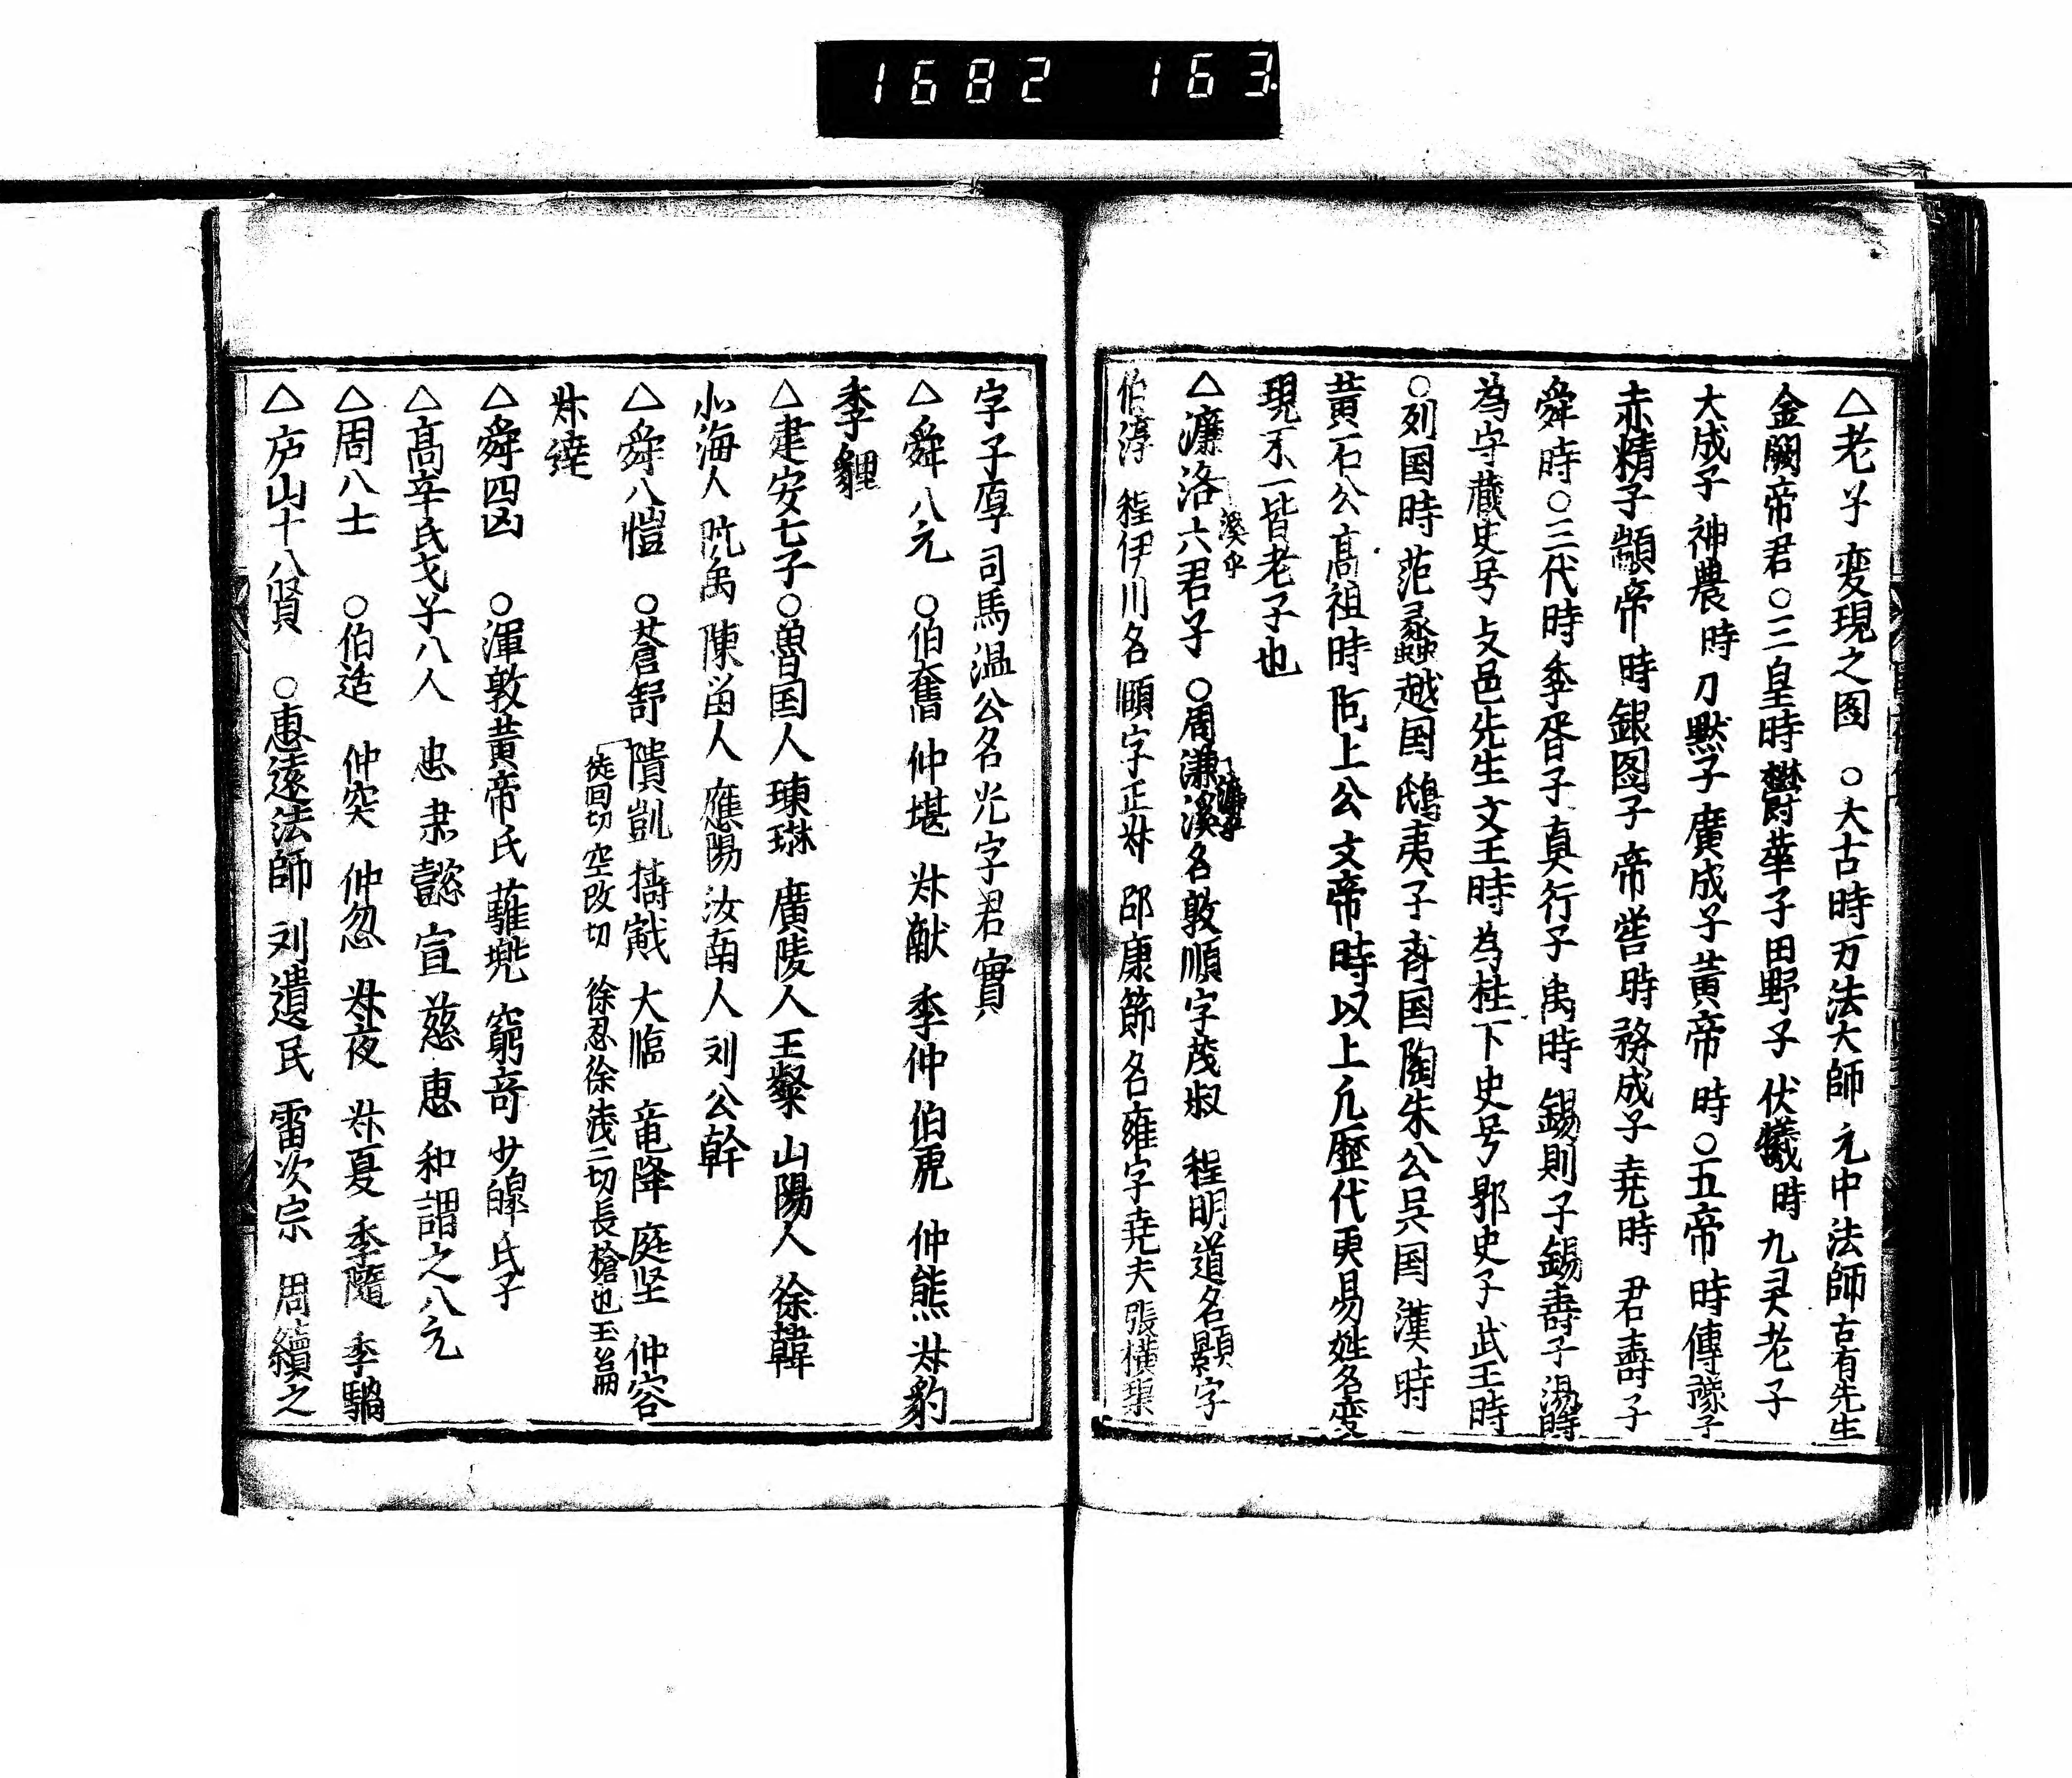 1682 163
△老子変現之図 ○大古時万法大師 元中法師古有先生
金闕帝君○三皇時欝華子田野子 伏犧時 九灵老子
大成子 神農時 刀黙子 廣成子 黄帝時○五帝時傳豫子
赤精子顓帝時 録図子 帝嚳時 務成子 尭時 君壽子
舜時○三代時 季胥子 真行子 禹時 錫則子 錫壽子 湯時
為守蔵史号支邑先生 文王時 為柱下史号郭史子 武王時
○列国時范蠡越国 鴟夷子斉国陶朱公呉国 漢時
黄石公高祖時 阮上公文帝時以上凢歴代更易姓名変
現不一皆老子也
△濂洛六君子 ○周濂溪名敦順字茂叔 程明道名顥字
溪乎
濂乎
伯淳 程伊川名頥字正叔 邵康節名雍字尭夫 張横渠
字子厚 司馬温公名光字君實
△舜八元 ○伯奮 仲堪 叔献 季仲 伯虎 仲熊 叔豹
季貍
△建安七子○魯国人 陳琳廣陵人 王粲山陽人 徐韓
北海人 阮禹陳畄人 應陽汝南人 刘公幹
△舜八愷 ○蒼舒 隤凱 擣戭 大臨 竜降 庭坚 仲容
徒回切 空改切 徐忍徐浅二切長槍也玉萹
叔達
△舜四凶 ○渾敦黄帝氏 驩兠 窮竒 少皥氏子
△髙辛氏戈子八人 忠 粛 懿 宣 慈 惠 和謂之八元
△周八士 ○伯适 仲突 仲忽 叔夜 叔夏 季隨 季騧
△庐山十八賢 ○惠遠法師 刘遺民 雷次宗 周續之